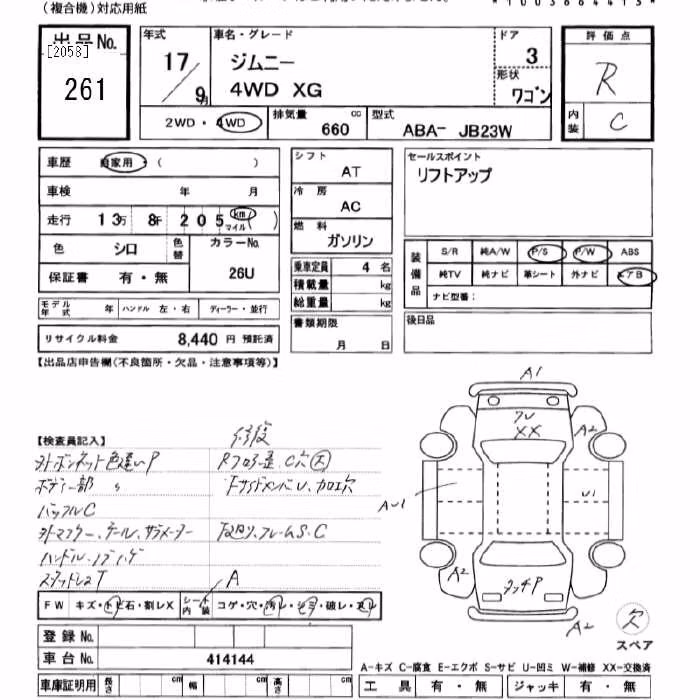 （複合機）対応用紙
*1003664413*
出品No.
[2058]
261
年式
17／9月
車名・グレード
ジムニー
4WD XG
ドア
3
形状
ワゴン
評価点
R
内装
C
2WD・4WD
排気量
660
cc
型式
ABA- JB23W
車歴
自家用・（ ）
車検 年 月
走行 13万 8千 205 km マイル（ ）
色 シロ
色替
カラーNo.
26U
保証書 有・無
モデル年式 年
ハンドル 左・右
ディーラー・並行
リサイクル料金 8,440 円 預託済
シフト
AT
冷房
AC
燃料
ガソリン
乗車定員 4 名
積載量 kg
総重量 kg
書類期限
月 日
セールスポイント
リフトアップ
装備品
S/R 純A/W P/S P/W ABS
純TV 純ナビ 革シート 外ナビ エアB
ナビ型番：
後日品
【出品店申告欄(不良箇所・欠品・注意事項等)】
【検査員記入】
修復
外ボンネット色違いP
ボディー部 〃
バッフルC
外マフラー、テール、サブメーター
ハンドル、
スタッドレスT
下廻り、フレームS、C
A
FW キズ・トビ石・割レX
シート内装
コゲ・穴・汚レ・シミ・破レ・スレ
登録No.
車台No. 414144
車庫証明用 長さ cm 幅 cm 高さ cm
A1
XX
A2
AU1
U1
A2
タッチP
A2
欠
スペア
A-キズ C-腐食 E-エクボ S-サビ U-凹ミ W-補修 XX-交換済
工具 有・無 ジャッキ 有・無